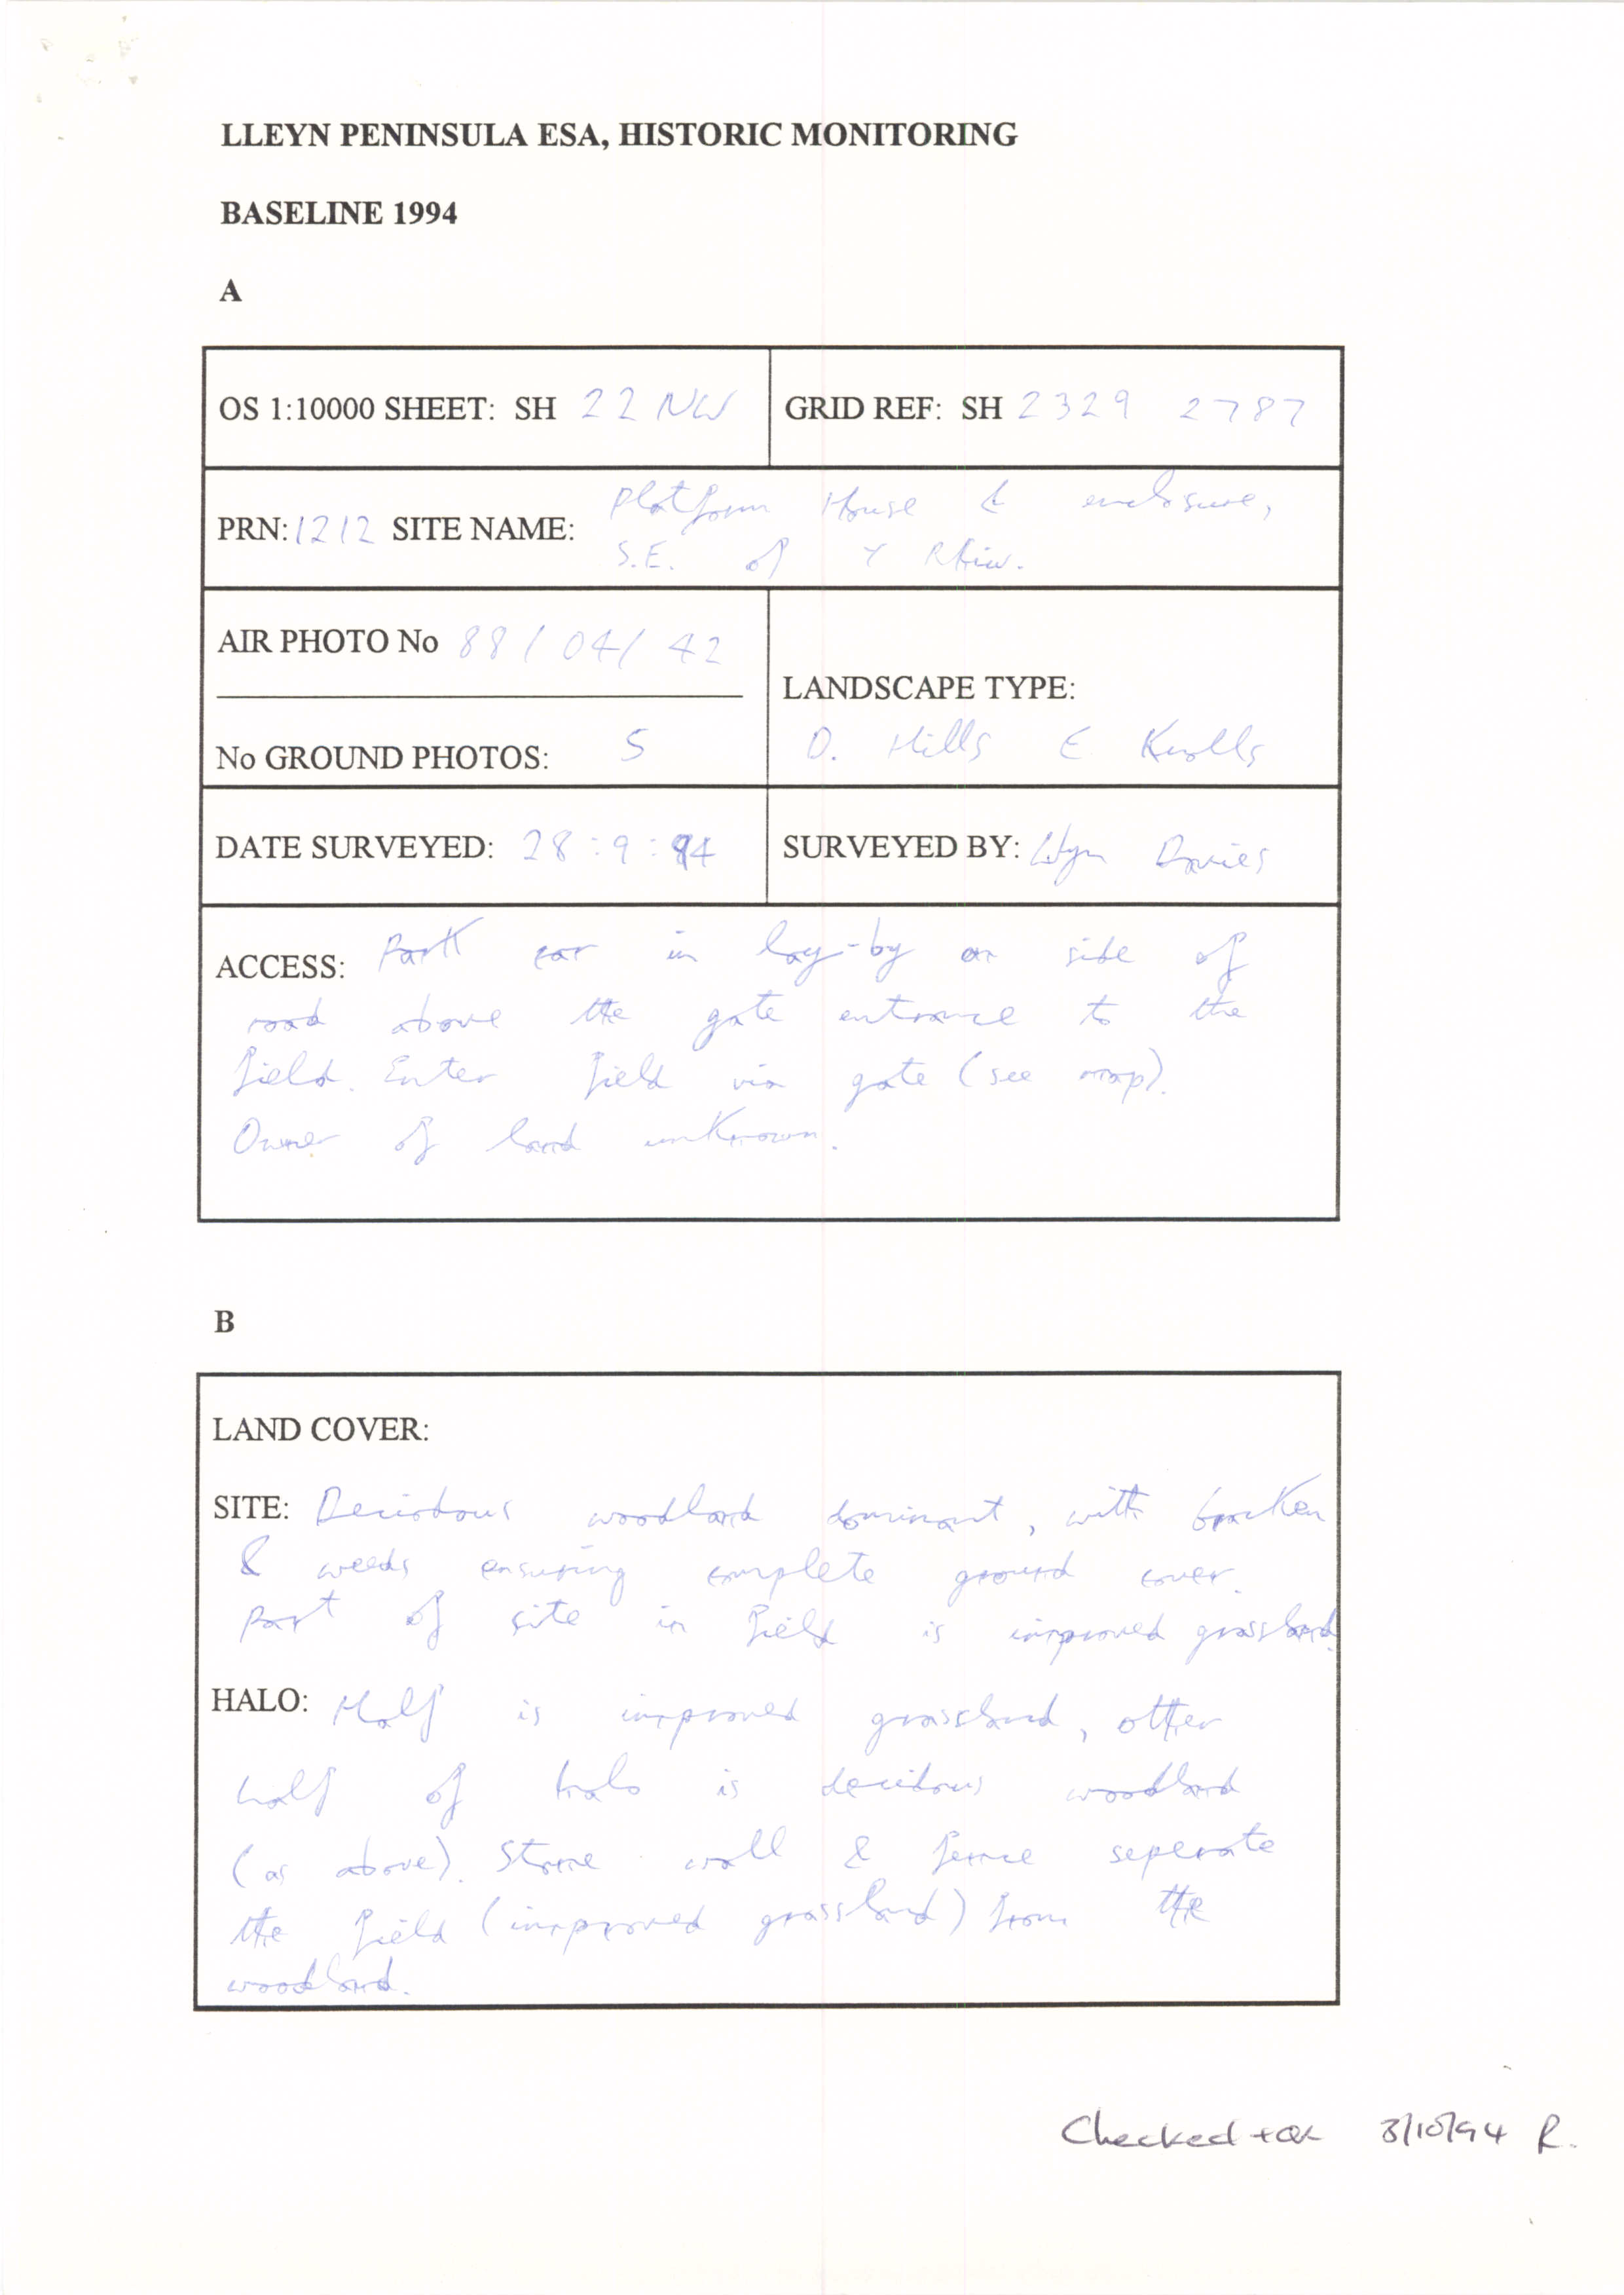 LLEYN PENINSULA ESA, HISTORIC MONITORING
BASELINE 1994
A
OS 1:10000 SHEET: SH 22 NW
GRID REF: SH 2329 2787
PRN: 1212 SITE NAME: Platform House & enclosure,
S.E. of Y Rhiw.
AIR PHOTO No 88/04/42
No GROUND PHOTOS: 5
LANDSCAPE TYPE:
D. Hills & Knolls
DATE SURVEYED: 28:9:94
SURVEYED BY: Wyn Davies
ACCESS: Park car in lay-by on side of
road above the gate entrance to the
field. Enter field via gate (see map).
Owner of land unknown.
B
LAND COVER:
SITE: Decidous woodland dominant, with bracken
& weeds ensuring complete ground cover.
Part of site in field is improved grassland.
HALO: Half is improved grassland, other
half of halo is decidous woodland
(as above). Stone wall & fence seperate
the field (improved grassland) from the
woodland.
Checked + OK 3/10/94 R.